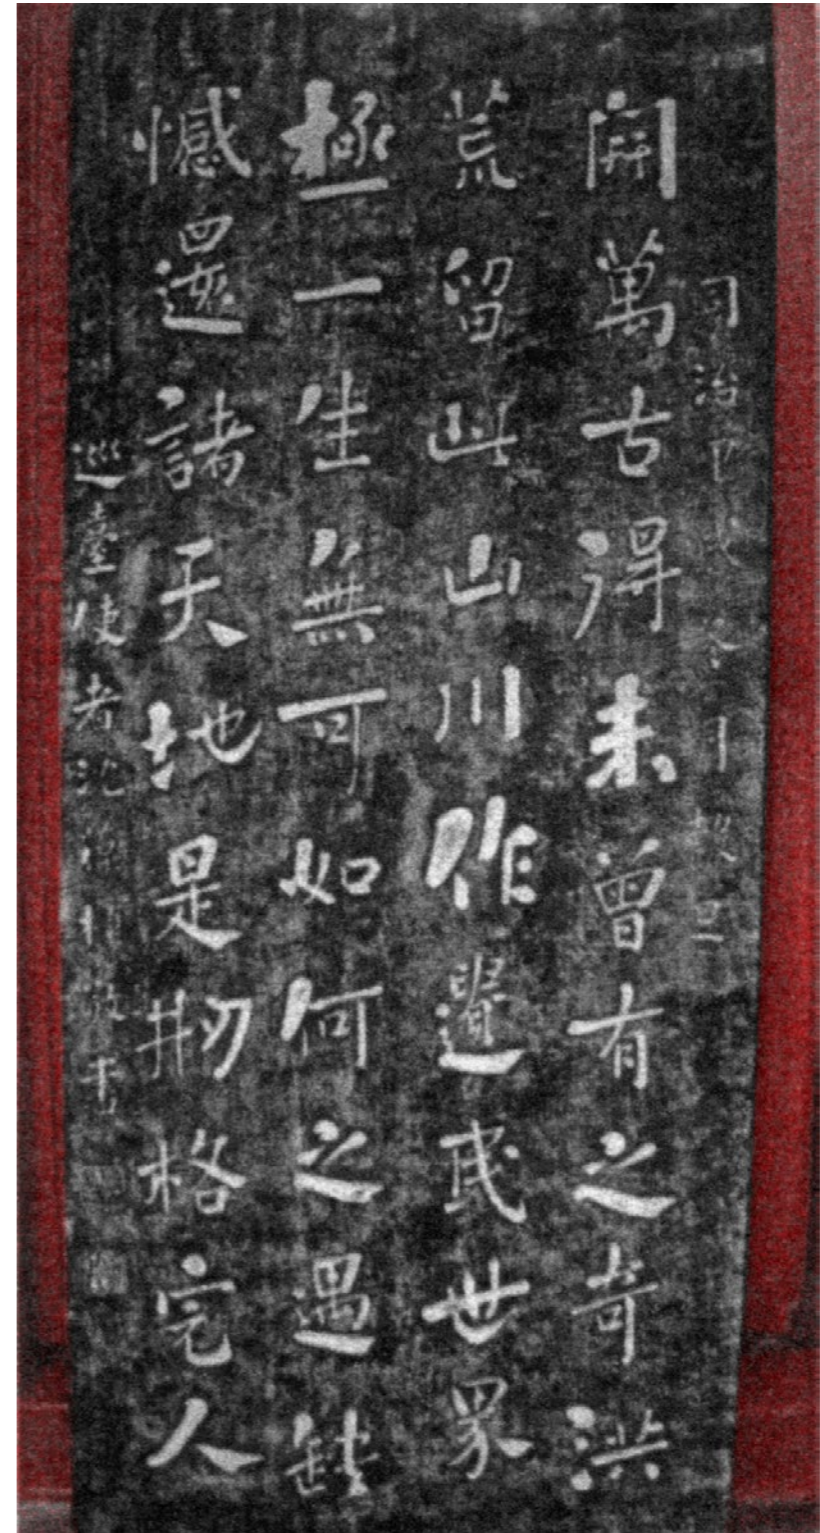 同治
開萬古得未曾有之奇洪
荒留此山川作遺民世界
極一生無可如何之遇缺
憾還諸天地是刱格完人
巡臺使者沈葆楨敬書